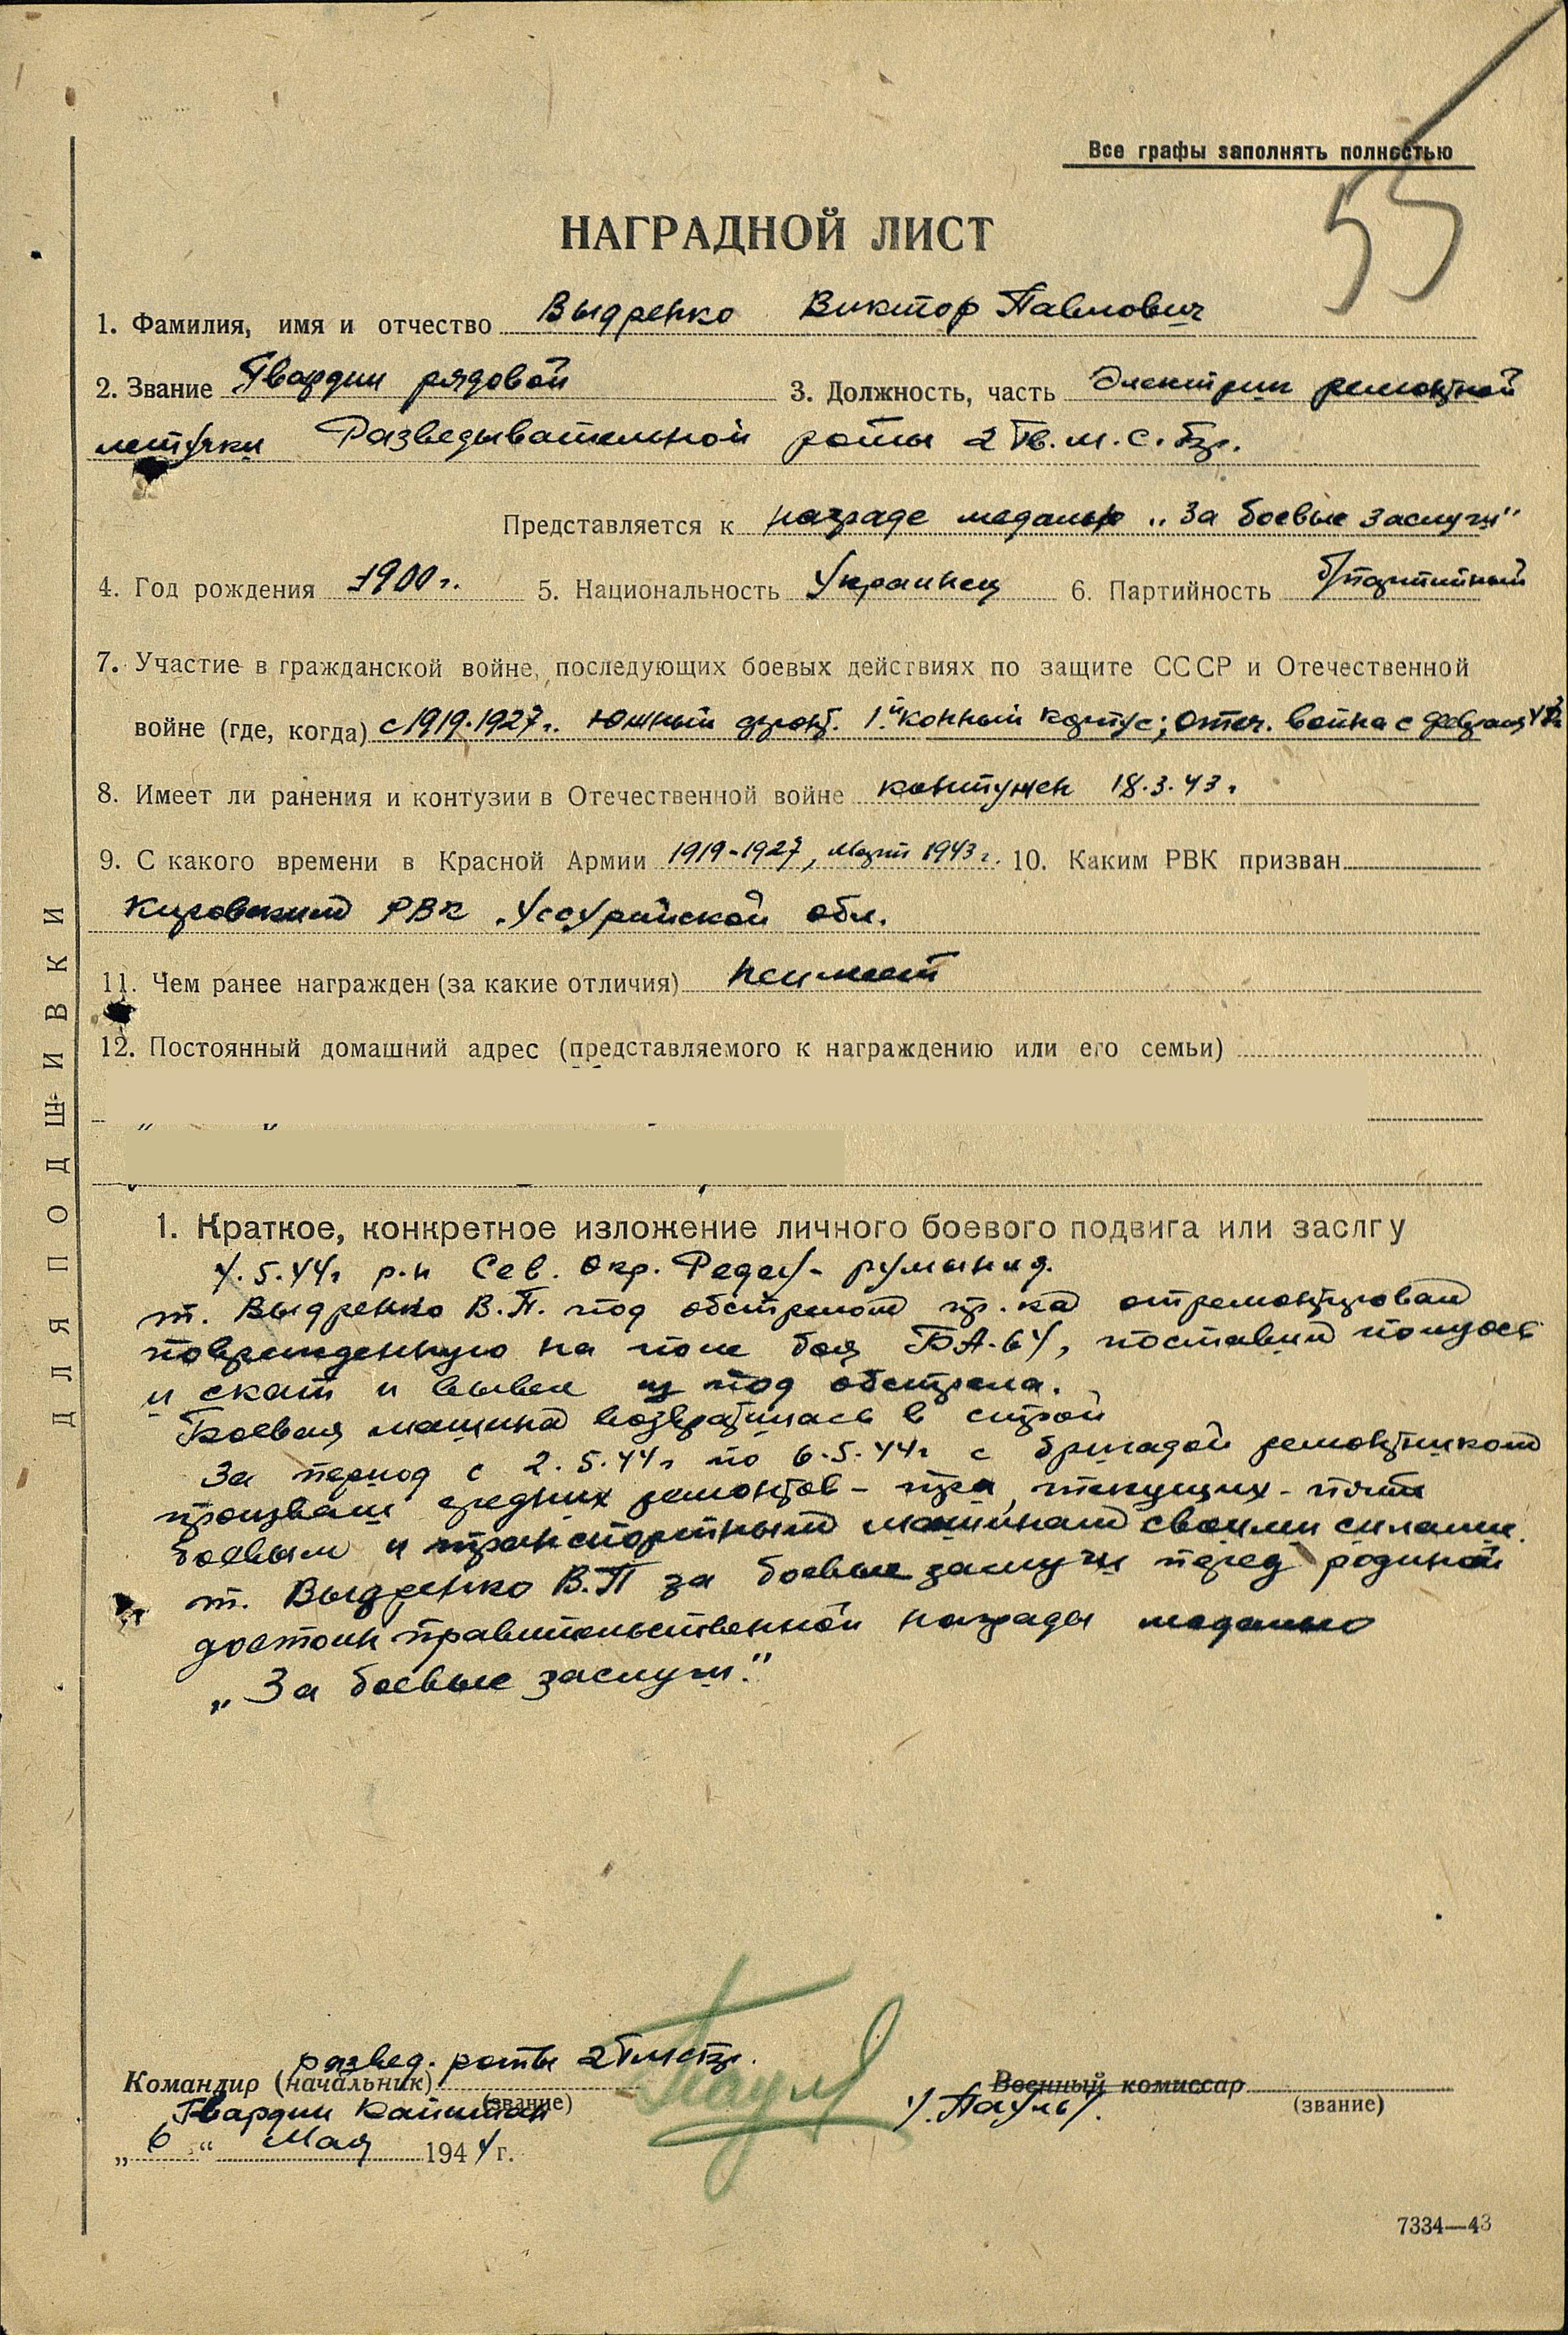 55
Все графы заполнять полностью
НАГРАДНОЙ ЛИСТ
1. Фамилия, имя и отчество Выдренко Виктор Павлович
2. Звание Гвардии рядовой 3. Должность, часть Электрик ремонтной
летучки Разведывательной роты 2 Гв.м.с.бр.
Представляется к награде медалью „За боевые заслуги"
4. Год рождения 1900 г. 5. Национальность Украинец 6. Партийность б/партийный
7. Участие в гражданской войне, последующих боевых действиях по защите СССР и Отечественной
войне (где, когда) с 1919-1927 г. Южный фронт. 1.й конный корпус; Отеч. война с февраля
8. Имеет ли ранения и контузии в Отечественной войне контужен 18.3.43 г.
9. С какого времени в Красной Армии 1919-1927, Март 1943 г. 10. Каким РВК призван
Кировским РВК Уссурийской обл.
11. Чем ранее награжден (за какие отличия) не имеет
12. Постоянный домашний адрес (представляемого к награждению или его семьи)
1. Краткое, конкретное изложение личного боевого подвига или заслгу
4.5.44 г р-н Сев. Окр. Редеу- румыния.
т. Выдренко В.П. под обстрелом пр.ка отремонтировал
поврежденную на поле боя БА-64, поставил полуось
и скат и вывел из под обстрела.
Боевая машина возвратилась в строй
За период с 2.5.44 г по 6.5.44 г с бригадой ремонтников
произвели средних ремонтов - три, текущих - пять
боевым и транспортным машинам своими силами.
т. Выдренко В.П за боевые заслуги перед родиной
достоин правительственной награды медалью
„За боевые заслуги."
развед. роты 2 Гмсбр.
Командир (начальник) Военный комиссар
(звание) (звание)
Гвардии Капитан Паул /Пауль/.
„6" Мая 1944 г.
7334—43
ДЛЯ ПОДШИВКИ